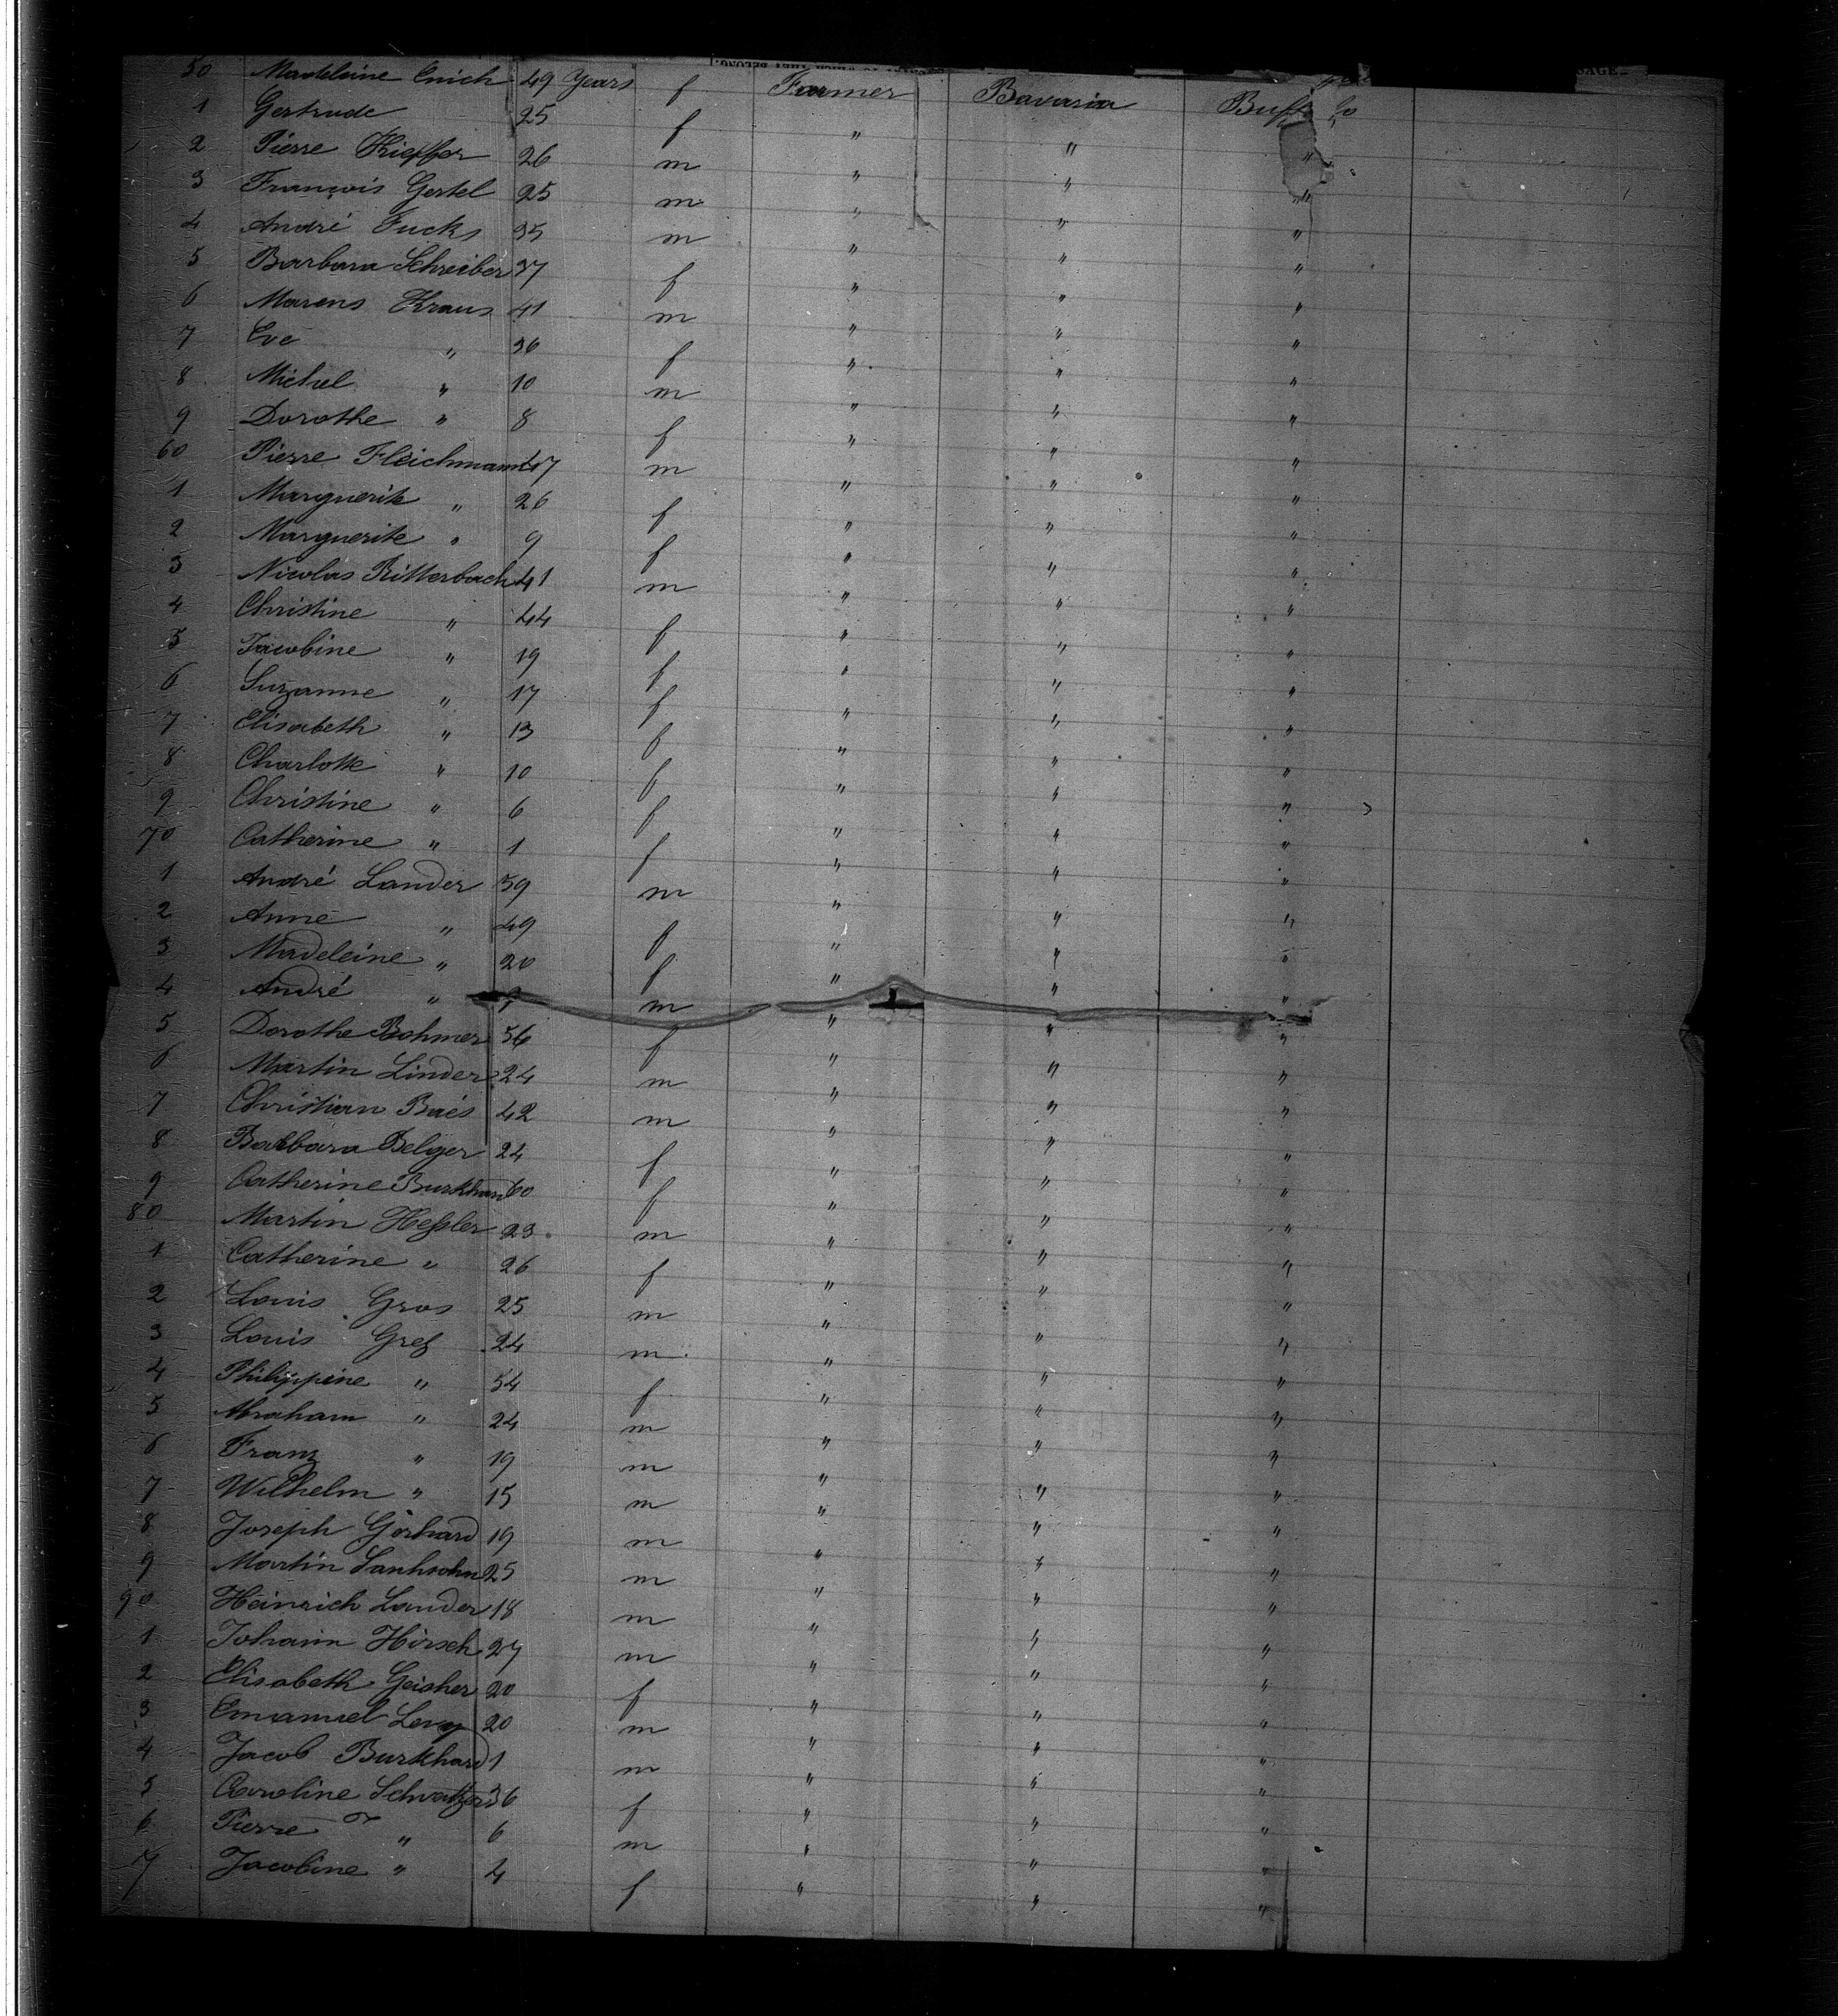 50 Madeleine Enich 49 Years f Farmer Bavaria Buffalo
1 Gertrude 25 f " " "
2 Pierre Kieffer 26 m " " "
3 François Gertel 25 m " " "
4 André Fucks 35 m " " "
5 Barbara Schreiber 37 f " " "
6 Marens Kraus 41 m " " "
7 Eve " 36 f " " "
8 Michel " 10 m " " "
9 Dorothe " 8 f " " "
60 Pierre Fleichmann 47 m " " "
1 Marguerite " 26 f " " "
2 Marguerite " 9 f " " "
3 Nicolas Ritterbach 41 m " " "
4 Christine " 44 f " " "
5 Jacobine " 19 f " " "
6 Suzanne " 17 f " " "
7 Elisabeth " 13 f " " "
8 Charlotte " 10 f " " "
9 Christine " 6 f " " "
70 Catherine " 1 f " " "
1 André Lander 59 m " " "
2 Anne " 49 f " " "
3 Madeleine " 20 f " " "
4 André " m " " "
5 Dorothe Bohmer 56 f " " "
6 Martin Linder 24 m " " "
7 Christian Baés 42 m " " "
8 Barbara Belger 24 f " " "
9 Catherine Burkhard 60 f " " "
80 Martin Heßler 23 m " " "
1 Catherine " 26 f " " "
2 Louis Gros 25 m " " "
3 Louis Gref 24 m " " "
4 Philippine " 54 f " " "
5 Abraham " 24 m " " "
6 Franz " 19 m " " "
7 Wilhelm " 15 m " " "
8 Joseph Gerhard 19 m " " "
9 Martin 25 m " " "
90 Heinrich Lander 18 m " " "
1 Johann Hirsch 27 m " " "
2 Elisabeth Geisher 20 f " " "
3 Emanuel Levy 20 m " " "
4 Jacob Burkhard 1 m " " "
5 Caroline Schwatzer 36 f " " "
6 Pierre " 6 m " " "
7 Jacobine " 4 f " " "